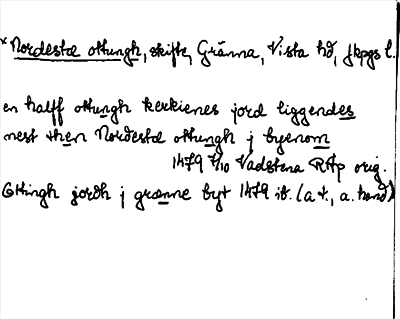 *Nordestæ ottungh, skifte, Gränna, Vista hd, Jkpgs l.
en halff ottungh kerkienes jord liggendes
nest then Nordestæ ottungh j byenom
1479 7/10 Vadstena RAp orig.
Ottingh jordh j grænne byt 1479 ib. (a t., a. hand)